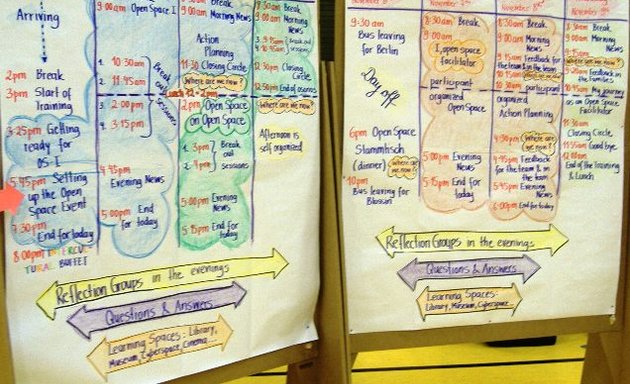 Arriving
2pm Break
3pm Start of Training
3:25pm Getting ready for OS-I
5:45pm Setting up the Open Space Event
7:30pm End for today
8:00pm INTERCUL
TURAL BUFFET
9:00am Open Space I
1. 10:30am
2. 11:45am
3. 2:00pm
4. 3:15pm
Break Out sessions
4:45pm
Evening News
5:00pm End for today
9:00am Morning News
Action Planning
11:30 Closing Circle
Where are we now?
Lunch 12-2pm
2pm Open Space on Open Space
1. 3pm
2. 4pm
Break out sessions
5:00pm Evening News
5:15pm End for today
8:30am Break
9:00am Morning News
Break out sessions
12:30pm Closing Circle
12:50pm End of osevens
Where are we now?
Afternoon is self organized
Reflection Groups in the evenings
Questions & Answers
Learning Spaces: Library, Museum, Cyberspace, Cinema...
9:30am
Bus leaving for Berlin
Day off
6pm Open Space Stammtisch (dinner)
where are we now?
10pm
Bus leaving for Blossin
8:30am Break
9:00am
I, open space facilitator
participant organized Open Space
5:00pm Evening News
5:15pm End for today
8:30am Break
9:00am Morning News
9:15am Feedback for the team & in the team
10:15am
10:30am participant organized Action Planning
4:30pm Where are we now?
4:45pm Feedback for the team & on the team
5:45pm Evening News
6:00pm End for today
8:30am Break
9:00am Morning News
9:15am
Where are we now?
9:30am Feedback in the families
10:45am My journey as an Open Space Facilitator
11:30am
Closing Circle
11:55am Good bye
12:00am
End of the training & Lunch
Reflection Groups in the evenings
Questions & Answers
Learning Spaces:
Library, Museum, Cyberspace...